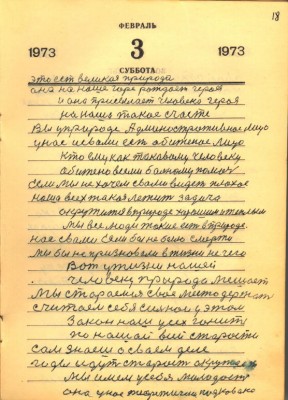 18
ФЕВРАЛЬ
1973 3 1973
СУББОТА
это ест великая природа
она на наше горе рождает героя
и она присылает человека героя
на наше такое счастье
Вы у природе Административное лицо
у нас с вами ест обиженое лицо
Кто ему как таковому человеку
обиженому болному поможет
Если мы не хочем с вами видет плохое
наша всех такая лежит задача
окружит в природе
Мы все люди такие ест в природе
нас с вами Если бы не было смерти
мы бы не признавали в жизни не чего
Вот у жизни нашей
человеку природа мешает
Мы стараемся свое методержат
считаем себя силной у этом
Закон наш усех гонит
по нашей всей старости
сам знаеш о своем деле
годы идут старост окружает
Мы имем у себе молодост
она у нас теоретична подкована